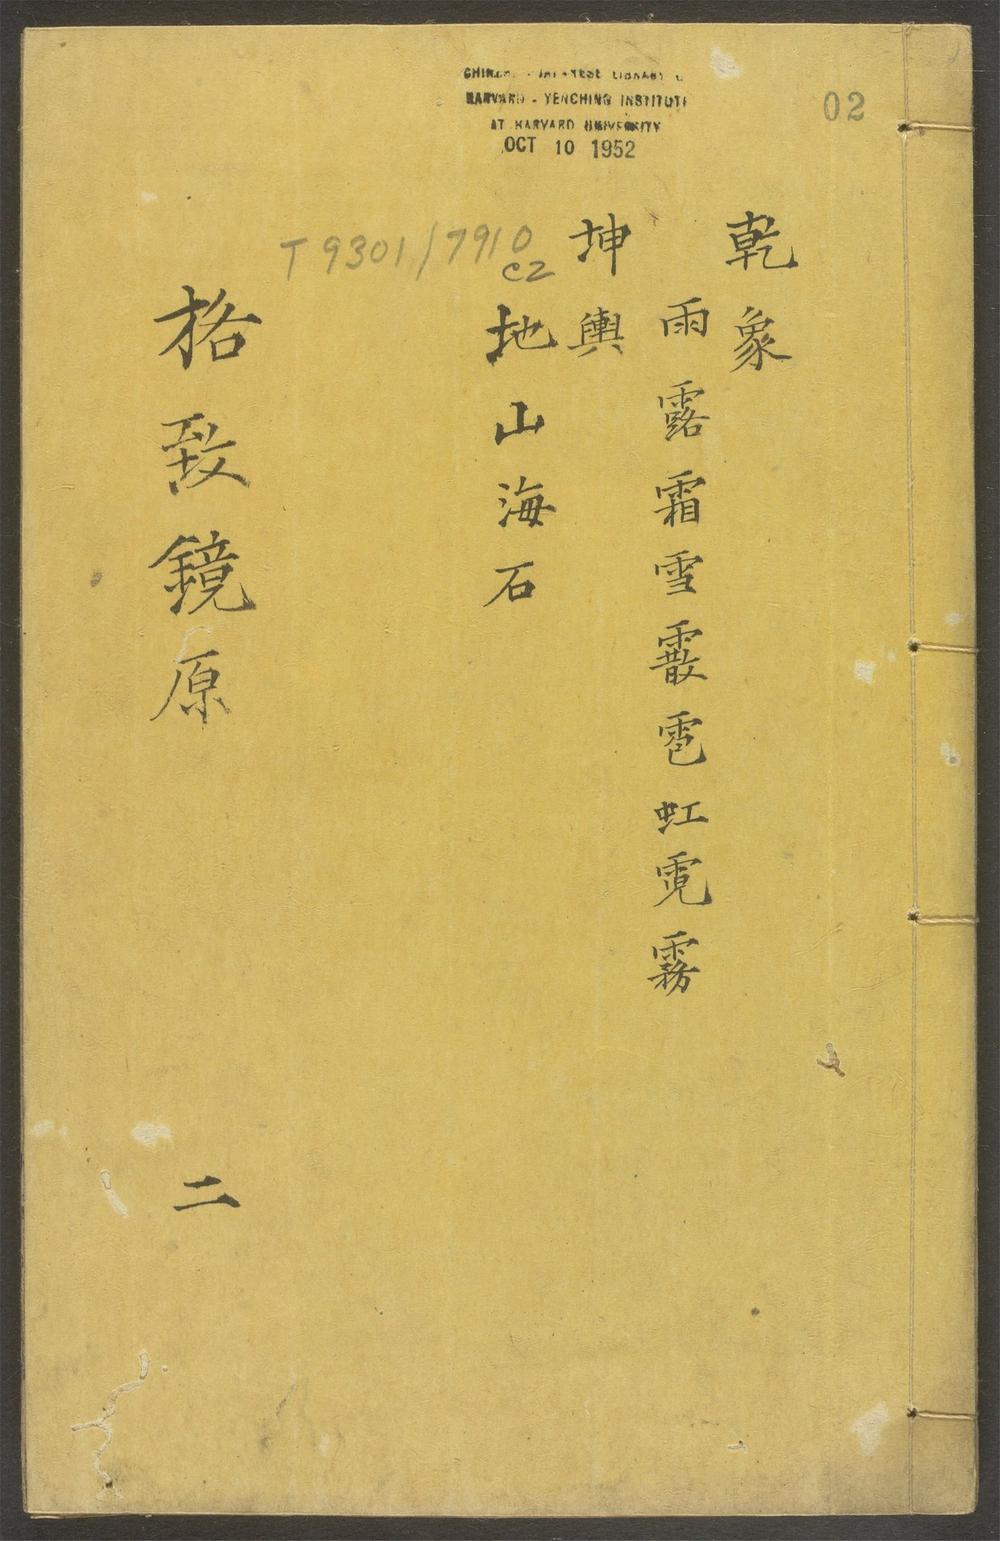 CHINESE - JAPANESE LIBRARY
HARVARD - YENCHING INSTITUTE
AT HARVARD UNIVERSITY
OCT 10 1952
02
T 9301/7910
C2
乾象
雨露霜雪霰雹虹霓霧
坤輿
地山海石
格致鏡原
二